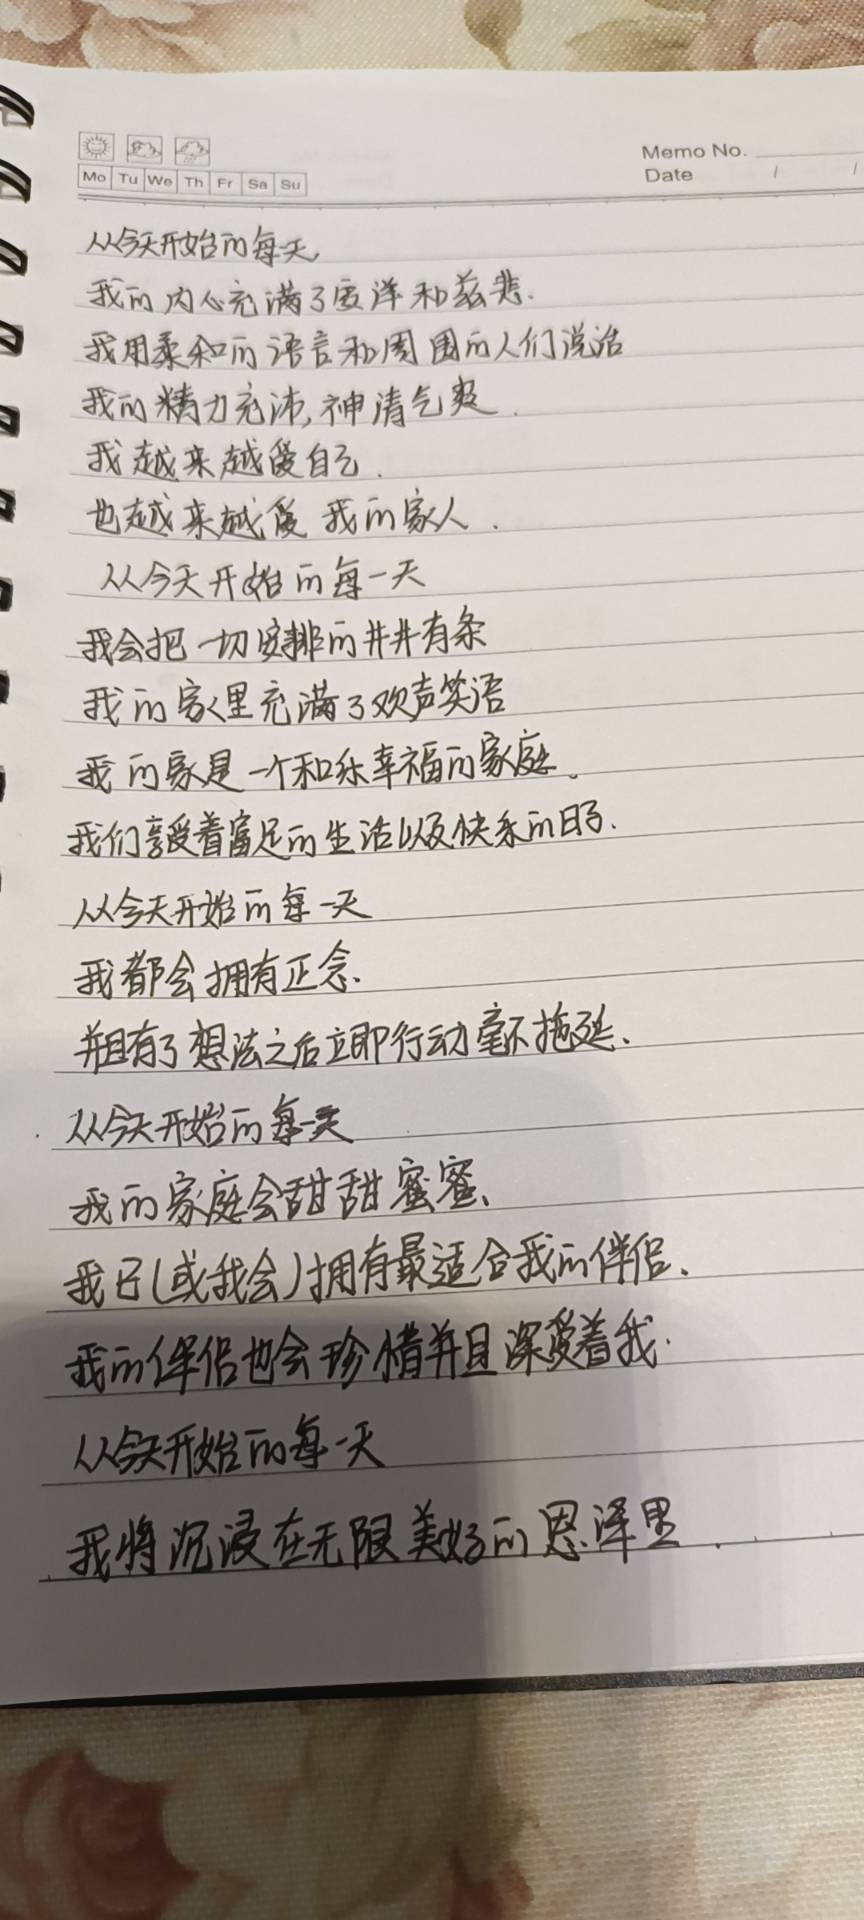 Memo No.
Mo Tu We Th Fr Sa Su
Date / /
从今天开始的每天,
我的内心充满了安详和慈悲.
我用柔和的语言和周围的人们说话
我的精力充沛,神清气爽.
我越来越爱自己.
也越来越爱我的家人.
从今天开始的每一天
我会把一切安排的井井有条
我的家里充满了欢声笑语
我的家是一个和乐幸福的家庭。
我们享受着富足的生活以及快乐的日子.
从今天开始的每一天
我都会拥有正念.
并且有了想法之后立即行动毫不拖延.
从今天开始的每一天
我的家庭会甜甜蜜蜜.
我已(或我会)拥有最适合我的伴侣.
我的伴侣也会珍惜并且深爱着我.
从今天开始的每一天
我将沉浸在无限美好的恩泽里.